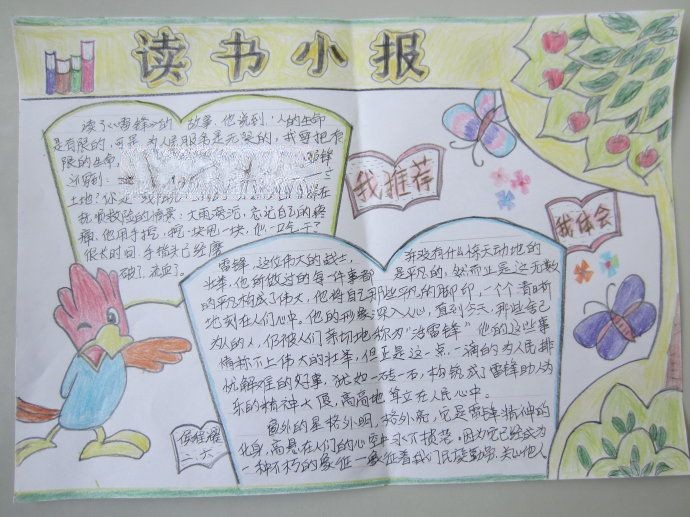 读书小报
读了《雷锋》的故事，他说到：人的生命
是有限的，可是为人民服务是无限的，我要把有
限的生命，
雷锋
还写到：
土地！你是
抗洪救险的情景：大雨滂沱，忘记自己的疼
痛，他用手挖，
很长时间，手指头已经磨
破了，流血了。
我推荐
我体会
雷锋，这位伟大的战士，
并没有什么惊天动地的
壮举，他所做过的每一件事都
是平凡的，然而正是这无数
的平凡构成了伟大，他将自己那些平凡的脚印，一个个清晰
地刻在人们心中。他的形象深入人心，直到今天，那些舍己
为人的人，仍被人们亲切地称为“活雷锋”他的这些事
情称不上伟大的壮举，但正是这一点一滴的为人民排
忧解难的好事，犹如一砖一石，构筑成了雷锋助人为
乐的精神大厦，高高地耸立在人民心中。
窗外的星格外明，格外亮，它是雷锋精神的
化身，高悬在人们的心空中永不损落。因为它已经成为
一种不朽的象征——象征着我们民族勤劳、关心他人
二.六